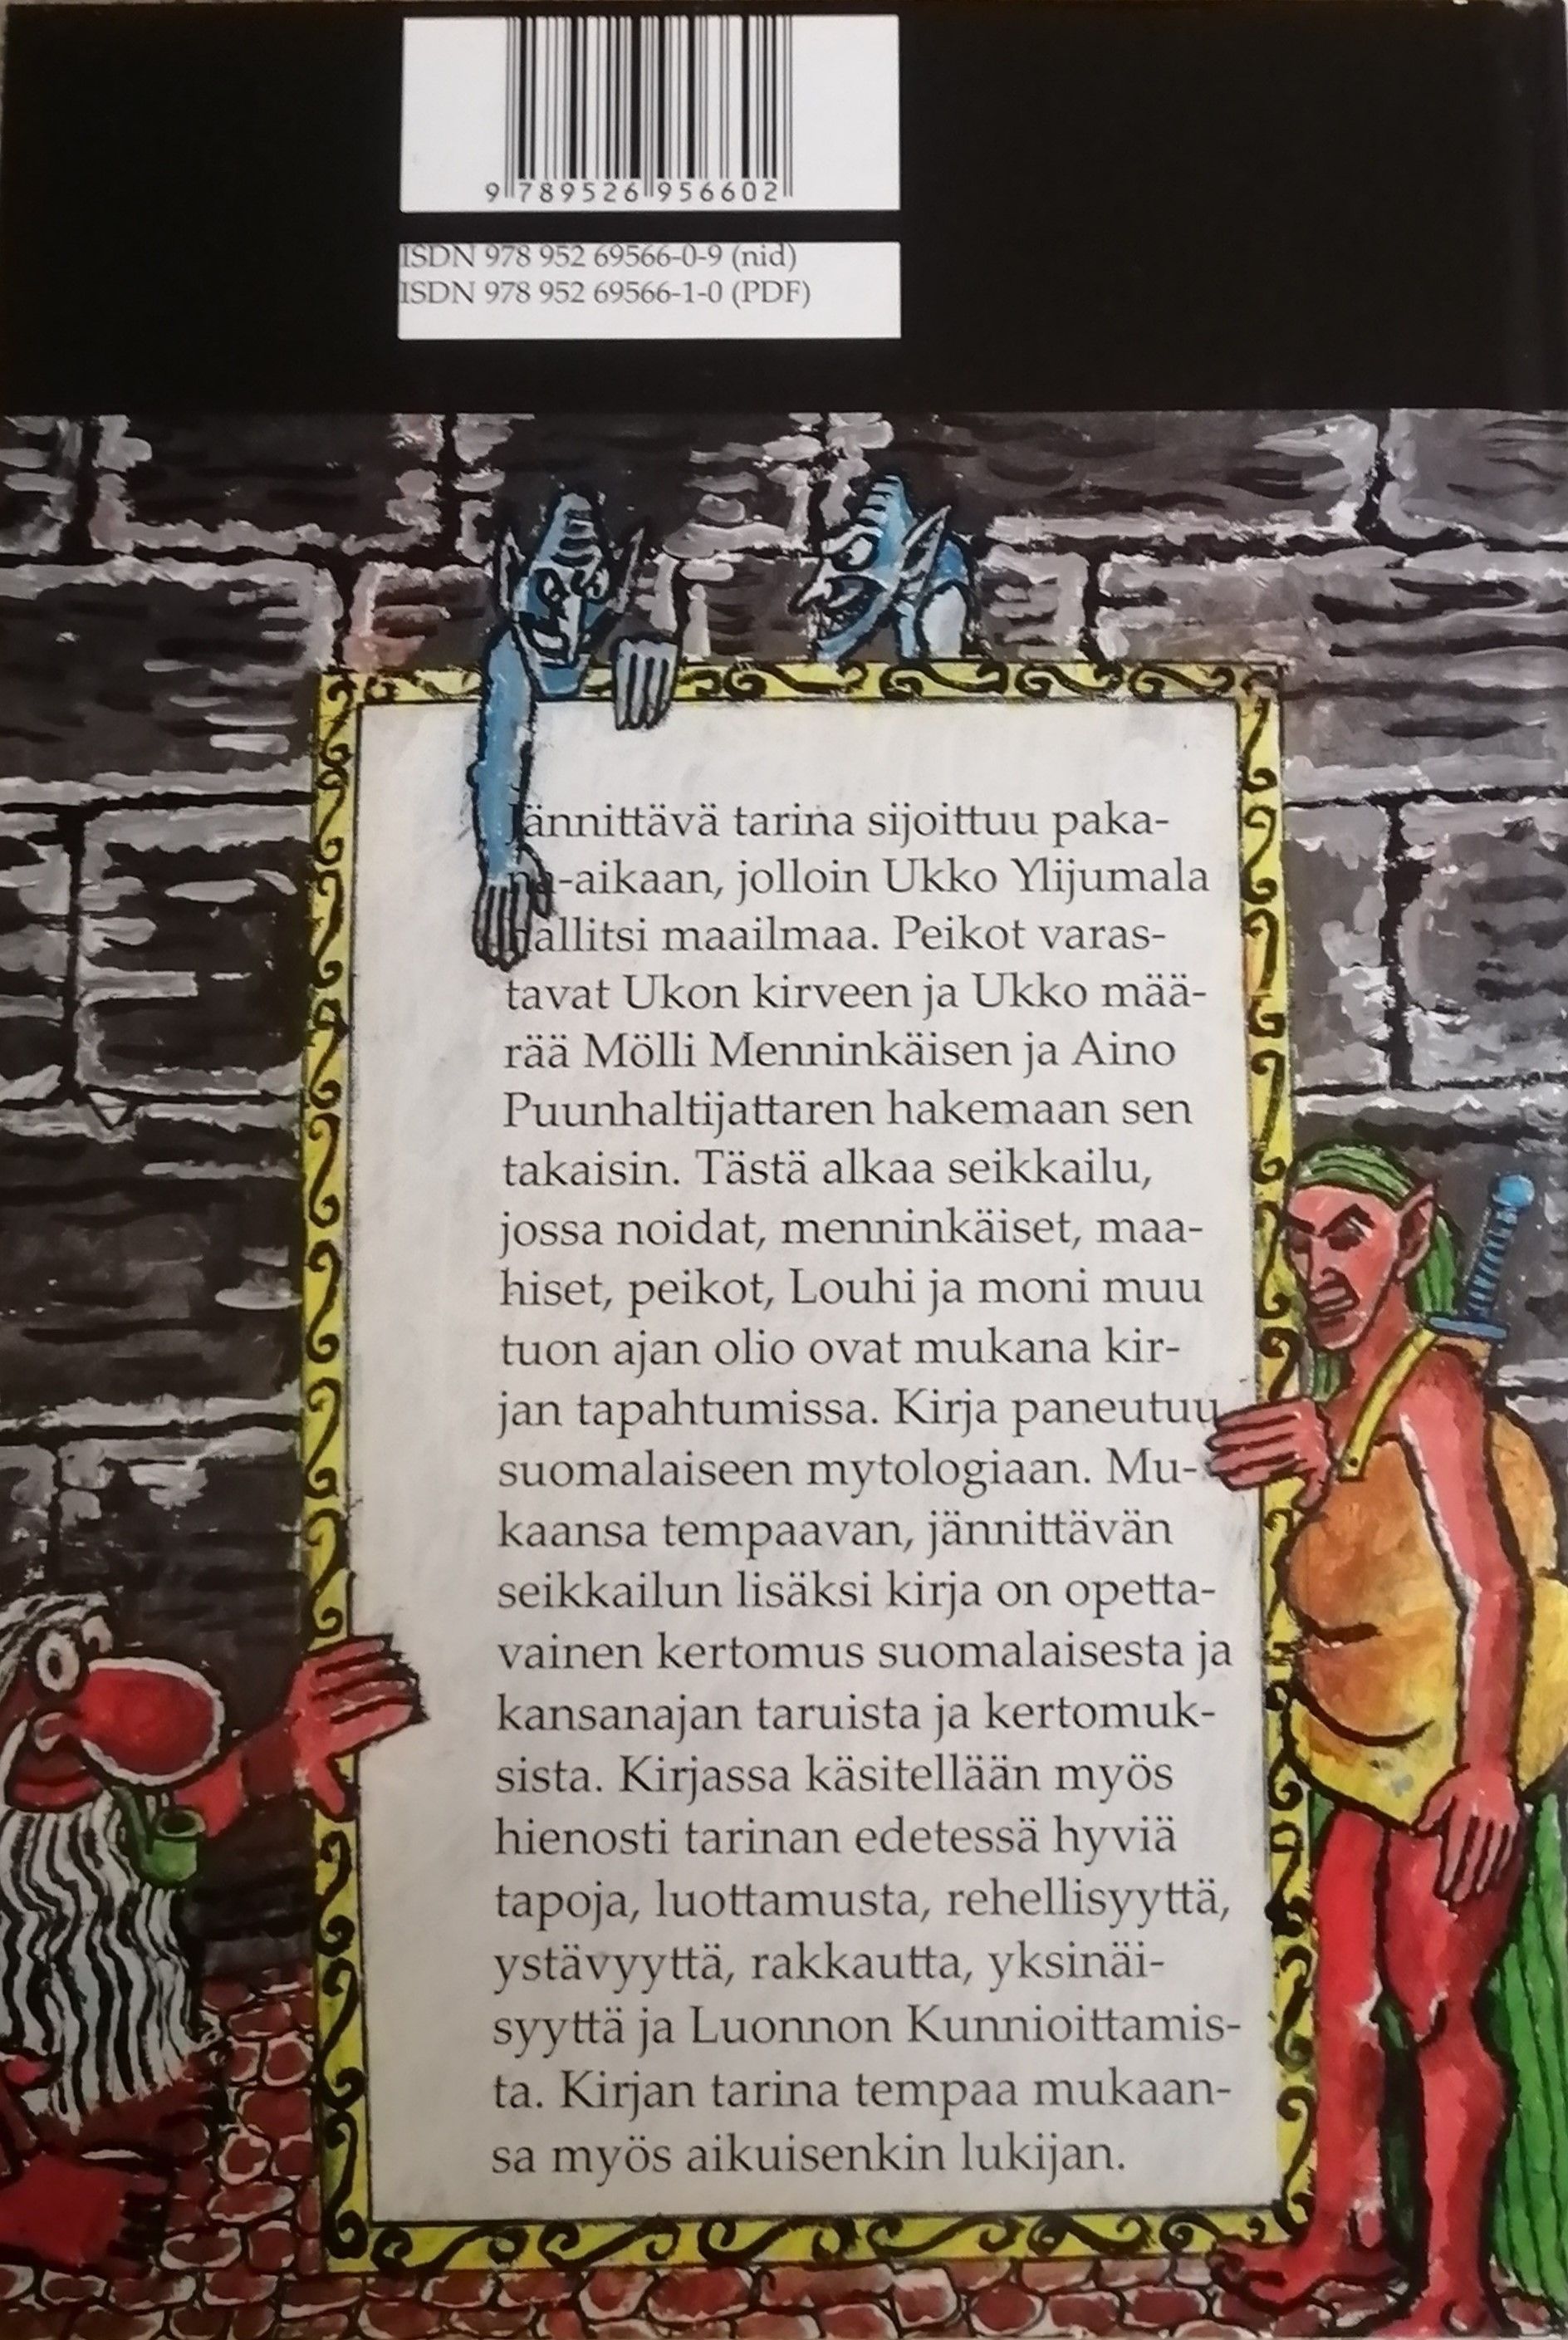 9 789526 956602
ISDN 978 952 69566-0-9 (nid)
ISDN 978 952 69566-1-0 (PDF)
Jännittävä tarina sijoittuu paka-
na-aikaan, jolloin Ukko Ylijumala
hallitsi maailmaa. Peikot varas-
tavat Ukon kirveen ja Ukko mää-
rää Mölli Menninkäisen ja Aino
Puunhaltijattaren hakemaan sen
takaisin. Tästä alkaa seikkailu,
jossa noidat, menninkäiset, maa-
hiset, peikot, Louhi ja moni muu
tuon ajan olio ovat mukana kir-
jan tapahtumissa. Kirja paneutuu
suomalaiseen mytologiaan. Mu-
kaansa tempaavan, jännittävän
seikkailun lisäksi kirja on opetta-
vainen kertomus suomalaisesta ja
kansanajan taruista ja kertomuk-
sista. Kirjassa käsitellään myös
hienosti tarinan edetessä hyviä
tapoja, luottamusta, rehellisyyttä,
ystävyyttä, rakkautta, yksinäi-
syyttä ja Luonnon Kunnioittamis-
ta. Kirjan tarina tempaa mukaan-
sa myös aikuisenkin lukijan.